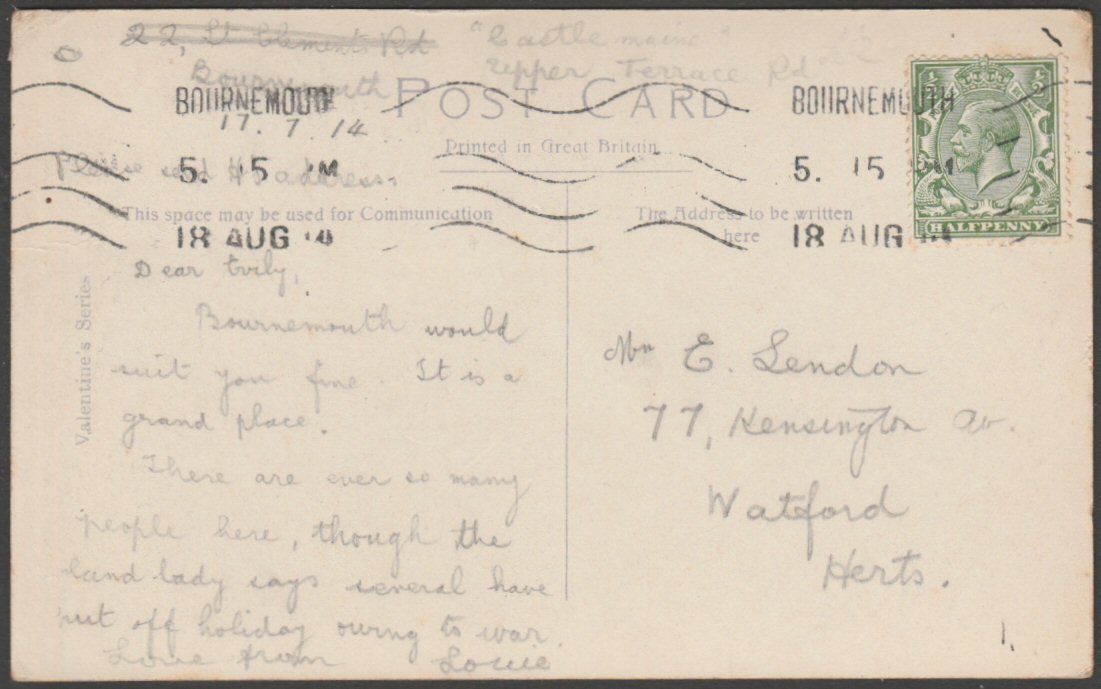 22, St Clements Rd "Castlemaine"
Bournemouth Upper Terrace Rd
POST CARD
BOURNEMOUTH BOURNEMOUTH
17. 7. 14
Printed in Great Britain
Please send H's address.
5. 15 PM 5. 15 PM
This space may be used for Communication The Address to be written
here
18 AUG 14 18 AUG 14
HALFPENNY
Valentine's Series
Dear
Bournemouth would
suit you fine. It is a
grand place.
There are ever so many
people here, though the
land lady says several have
put off holiday owing to war.
Love from Louie
E. Lendon
77, Kensington Av.
Watford
Herts.